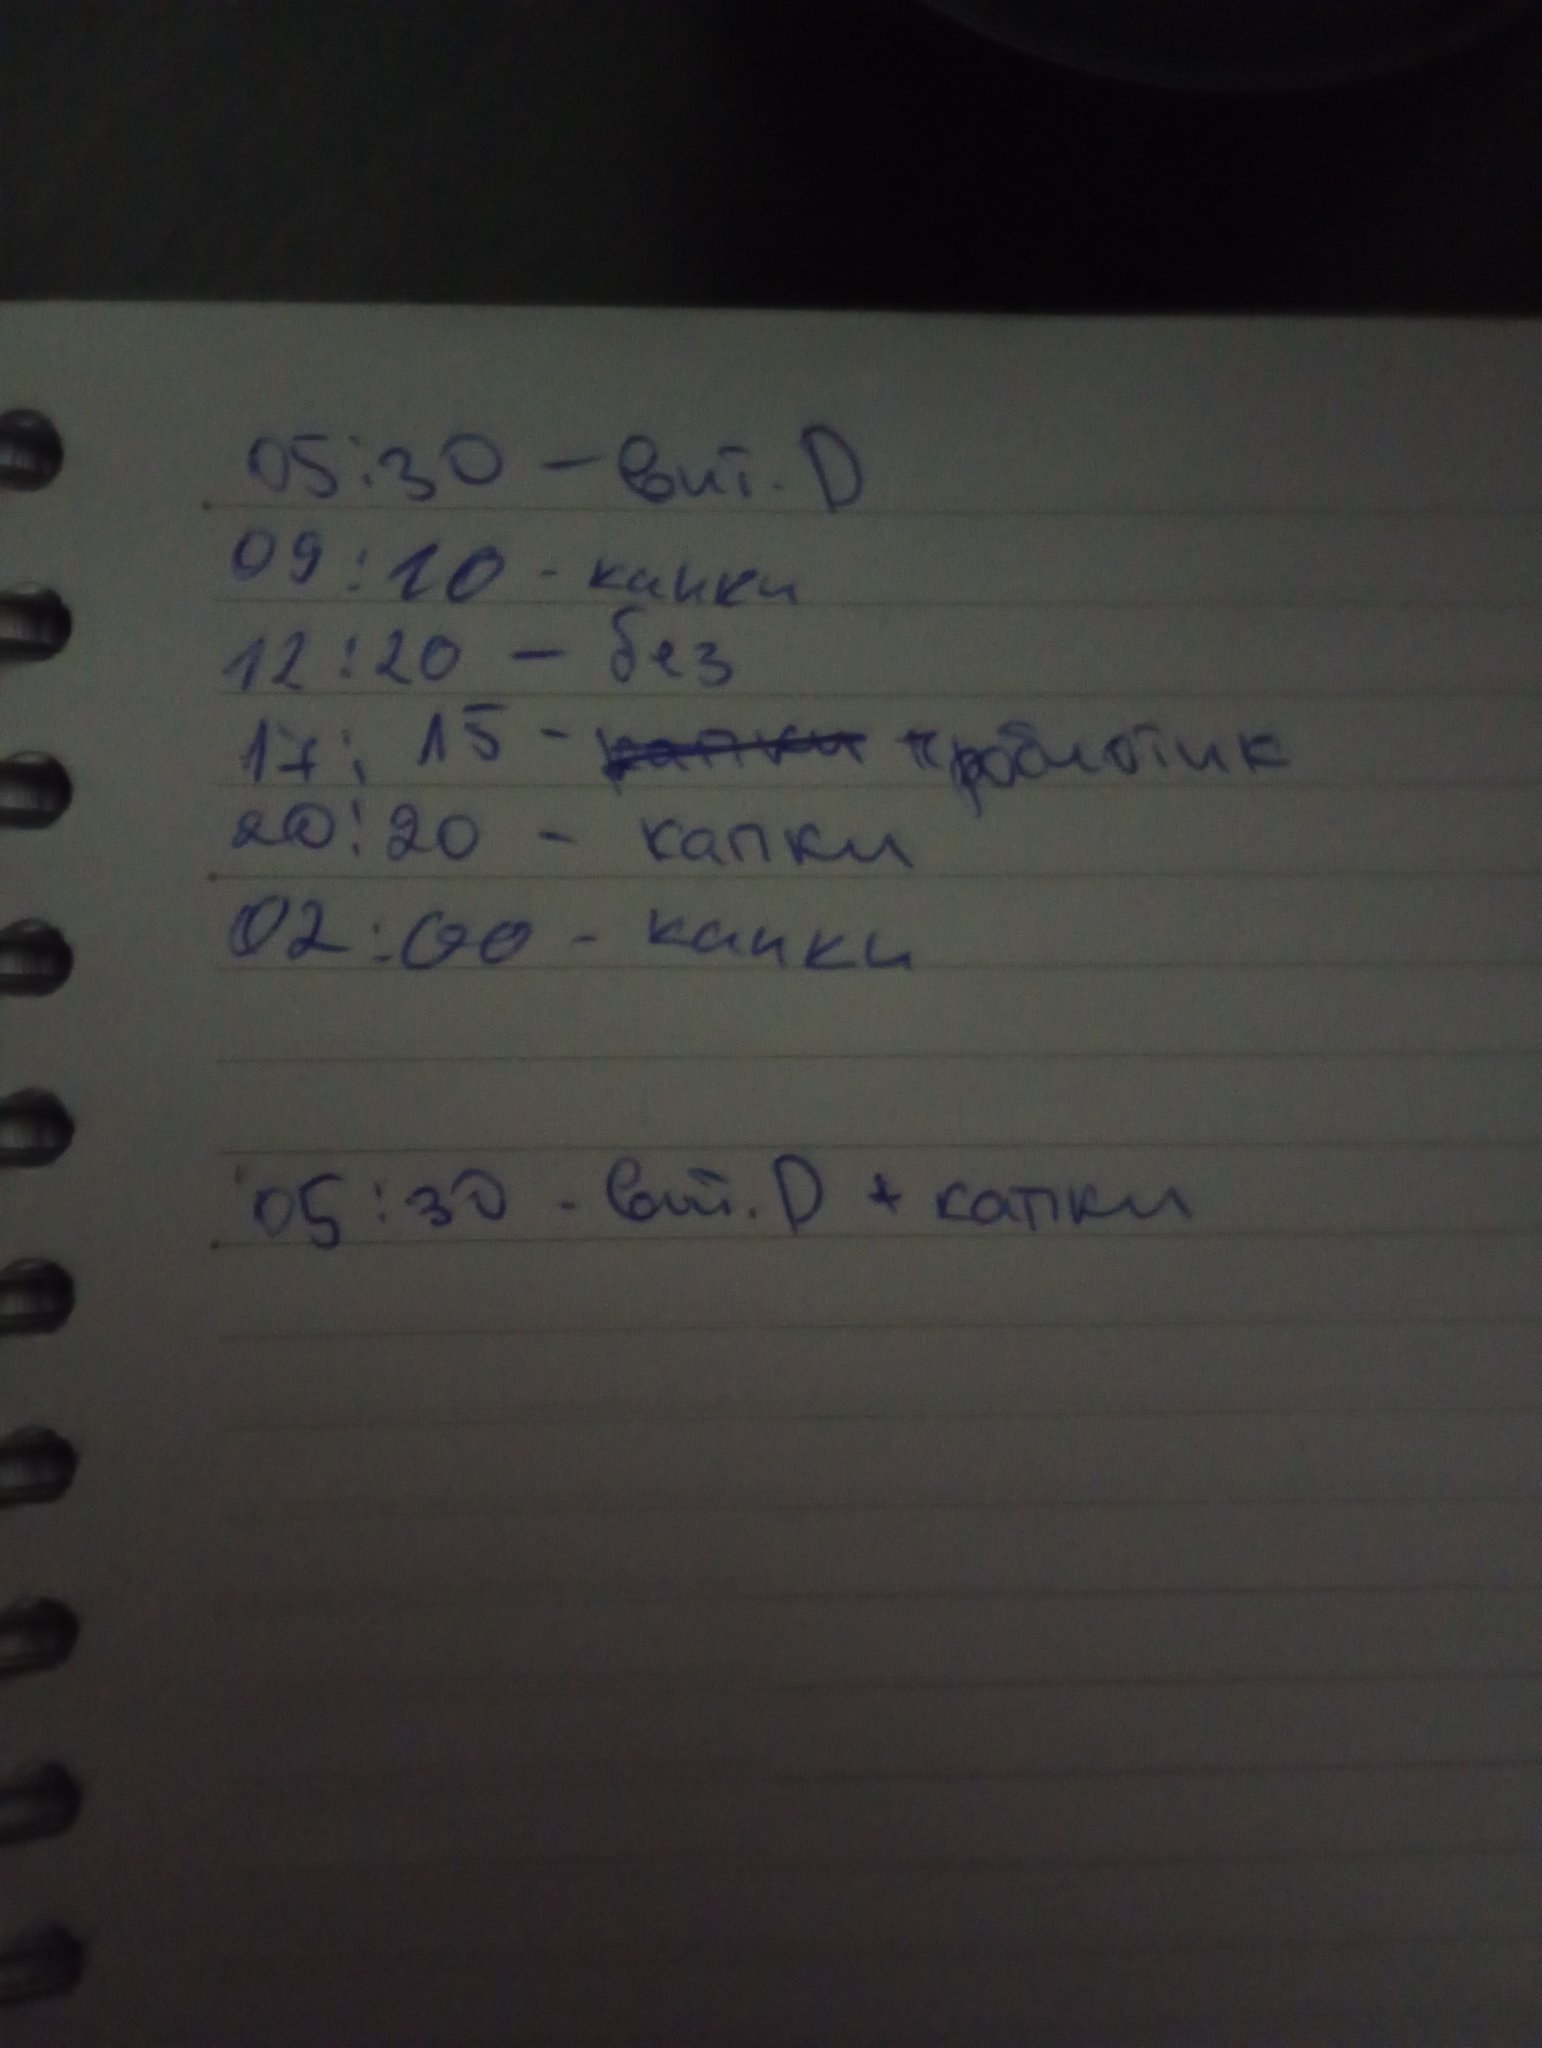 05:30 - вит. D
09:10 - капки
12:20 - без
17:15 - капки пробиотик
20:20 - капки
02:00 - капки
05:30 - вит. D + капки